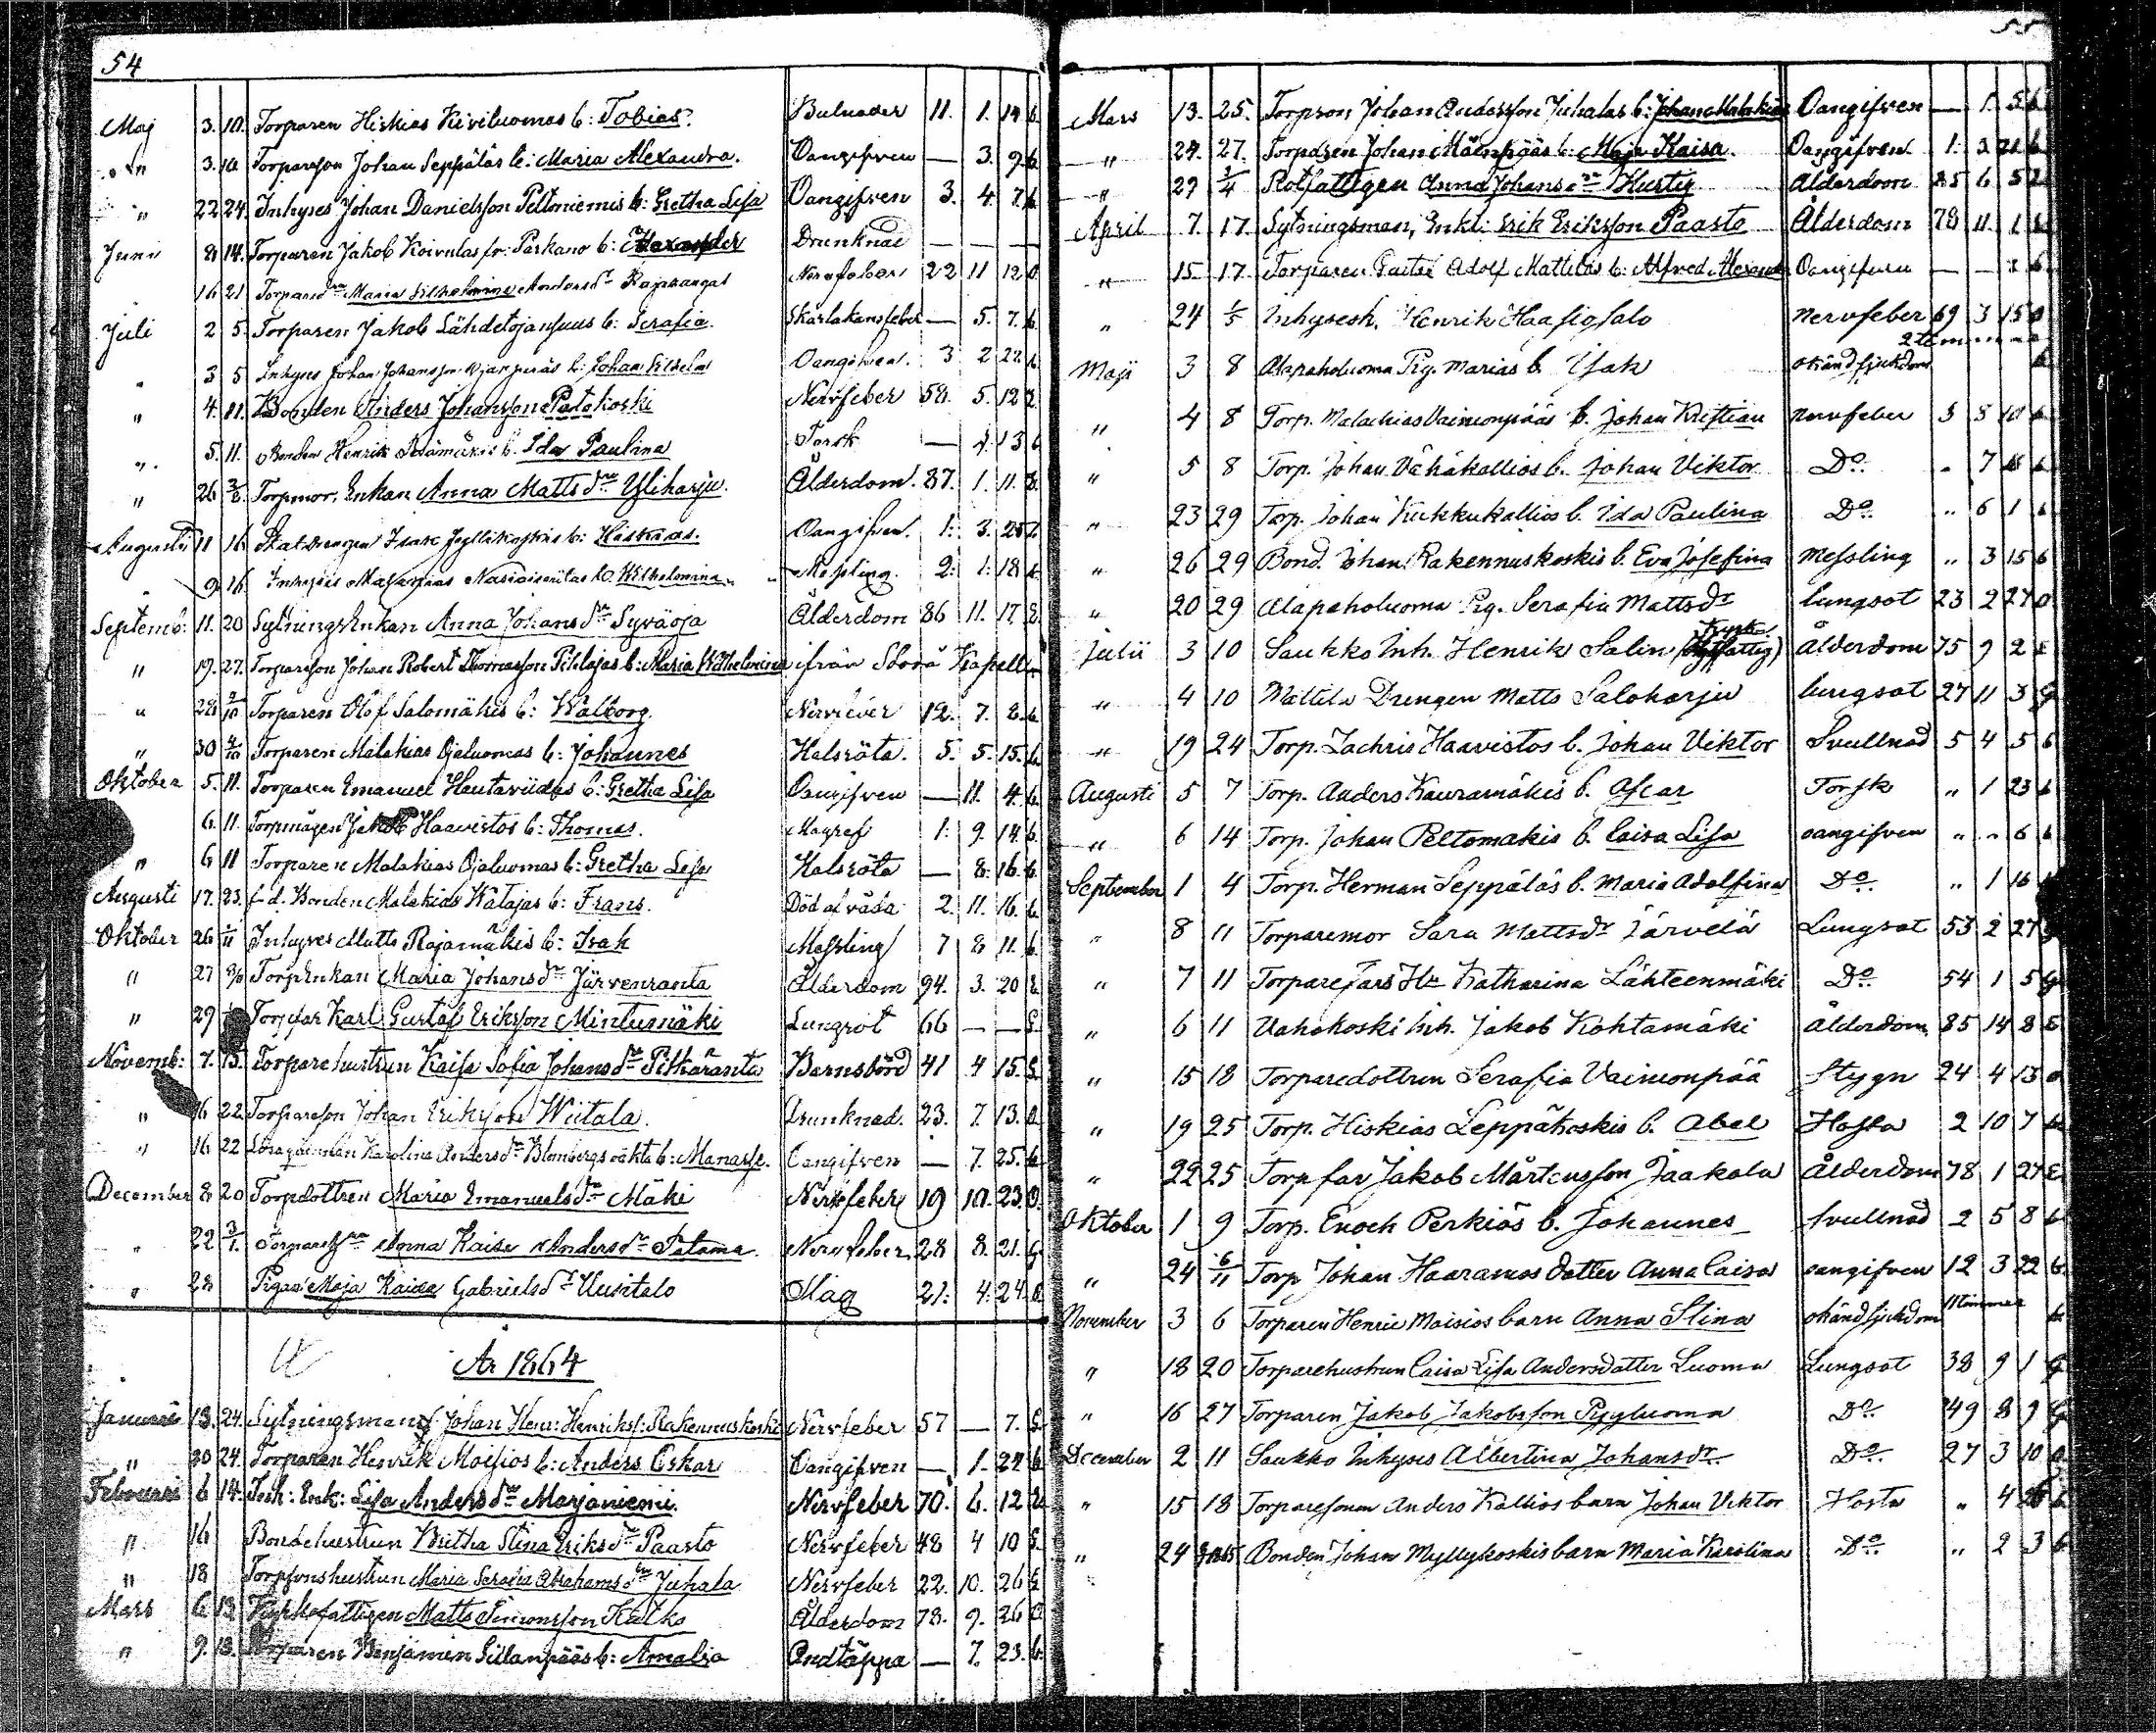 54
Maj 3. 10. Torparen Hiskias Kiviluomas b: Tobias. Bulnader 11. 1. 19 b.
" 3. 10. Torparson Johan Seppäläs b: Maria Alexandra. Oangifven — 3. 9. b
" 22 24. Inhyses Johan Danielsson Peltoniemis b: Gretha Lisa Oangifven 3. 4. 7. b
Juni 8 14. Torparen Jakob Koivulas fr. Parkano b: Alexander Drunknad — — —
16 21 Torpared:r Maria Vilhelmina Andersd:r Nervfeber 22 11 12 0
Juli 2 5. Torparen Jakob Lähdetojansuus b: Serafia. Skarlakansfeber — 5. 7. b.
" 3 5 Inhyses Johan Johansson b: Johan Vilhelm Oangifven. 3 2 22 b
" 4. 11. Bonden Anders Johansson Patokoski Nervfeber 58. 5. 12
" 5. 11. Bonden Henrik b. Ida Paulina Torsk — 4. 13 b
" 26 2/8 Torpmor. Enkan Anna Matts d:r Yliharju. Ålderdom. 87. 1. 11.
Augusti 11 16 Isak b: Hiskias. Oangifven. 1. 3. 25
" 9 16 Inhyses b. Wilhelmina Messling. 2. 1. 18
Septemb: 11. 20 Sytningsenkan Anna Johans d:r Syväoja Ålderdom 86 11. 17
" 19. 27. Torparson Johan Robert Thomasson Pihlajas b: Maria Wilhelmina ifrån Storå Kapell
" 28 2/10 Torparen Olof Salomäkis b: Walborg. Nervfeber 12. 7. 8. b
" 30 4/10 Torparen Malakias Ojaluomas b: Johannes Halsröta. 5. 5. 15. b
Oktober 5. 11. Torparen Emanuel Hautaviidas b: Gretha Lisa Oangifven — 11. 4. b
6. 11. Torpmågen Jakob Haavistos b: Thomas. Magref 1: 9. 14. b
" 6 11 Torparen Malakias Ojaluomas b: Gretha Lisa Halsröta — 8. 16. b
Augusti 17. 23. f. d. Bonden Malakias Katajas b: Frans. Död af våda 2. 11. 16. b
Oktober 26 1/11 Inhyses Matts Rajamäkis b: Isak Messling 7 8 11. b
" 27 Torpenkan Maria Johans d:r Järvenranta Ålderdom 94. 3. 20
" 29 Torpfar Karl Gustaf Eriksson Mintumäki Lungsot 66 — —
Novemb: 7. 15. Torparehustrun Kaisa Sofia Johans d:r Pitkäranta Barnsbörd 41 4 15. G.
" 16 22 Torparson Johan Eriksson Wiitala. Drunknad. 23. 7. 13. 0
" 16 22 Karolina Anders d:r Blombergs oäkta b: Manasse. Oangifven — 7. 25. b
December 8 20 Torpdottren Maria Emanuels d:r Mäki Nervfeber 19 10. 23. 0.
" 22 3/1. Anna Kaisa Anders d:r Salama. Nervfeber 28 8. 21. G
" 28 Pigan Maja Kaisa Gabriels d:r Uusitalo Slag 21. 4. 24.
År 1864
Januari 13. 24. Sytningsman Johan Henr: Henriks: Rakennuskoski Nervfeber 57 — 7. G
" 20 24. Torparen Henrik Moisios b: Anders Oskar Oangifven — 1. 24 b
Februari 6 14. Inh: Enk: Lisa Anders d:r Marjaniemi. Nervfeber 70. 6. 12
" 16 Bondehustrun Britha Stina Eriks d:r Paasto Nervfeber 48 4 10 G
" 18 Torpsonshustrun Maria Serafia Abrahams d:r Juhala Nervfeber 22. 10. 26 G
Mars 6 13 Matts Simonsson Kalko Ålderdom 78. 9. 26
" 9. 13. Torparen Benjamin Sillanpääs b: Amalia Andtäppa — 7. 23. b
55
Mars 13. 25. Torpson Johan Andersson Juhalas b: Johan Malakias Oangifven — 1. 5 b
" 24. 27. Torparen Johan Mäenpääs b: Maja Kaisa. Oangifven 1. 3 21 b
" 29 3/4 Rotfattigen Anna Johans d:r Hurtig Ålderdom 85 6 5
April 7. 17. Sytningsman, Enkl: Erik Eriksson Paasto Ålderdom 78 11. 1
" 15. 17. Torparen Adolf Mattilas b: Alfred Oangifven — — b
" 24 1/5 Inhysesh. Henrik Haapiosalo Nervfeber 69 3 15
Maji 3 8 Alapaholuoma Pig. Marias b. Isak okänd sjukdom b
" 4 8 Torp. Malachias Vainionpääs b. Johan Kristian Nervfeber 3 5 10 b
" 5 8 Torp. Johan Vähäkallios b. Johan Viktor D:o 7 b
" 23 29 Torp. Johan Kukkukallios b. Ida Paulina D:o " 6 1 b
" 26 29 Bond. Johan Rakennuskoskis b. Eva Josefina Messling " 3 15 b
" 20 29 Alapaholuoma Pig. Serafia Matts d:r lungsot 23 2 27 0
Julii 3 10 Saukko Inh. Henrik Salin Ålderdom 75 9 2
" 4 10 Mattila Drengen Matts Saloharju lungsot 27 11 3
" 19 24 Torp. Zachris Haavistos b. Johan Viktor Svullnad 5 4 5 b
Augusti 5 7 Torp. Anders Kauramäkis b. Oscar Torsk " 1 23 b
" 6 14 Torp. Johan Peltomäkis b. Caisa Lisa oangifven " " 6 b
September 1 4 Torp. Herman Seppäläs b. Maria Adolfina D:o " 1 16
" 8 11 Torparemor Sara Matts d:r Järvelä Lungsot 53 2 27
" 7 11 Katharina Lähteenmäki D:o 54 1 5 G
" 6 11 Inh. Jakob Kohtamäki Ålderdom 85 14 8 E
" 15 18 Torparedottren Serafia Vainionpää Stygn 24 4 13 0
" 19 25 Torp. Hiskias Leppäkoskis b. Abel Hosta 2 10 7 b
" 22 25 Torpfar Jakob Mårtensson Jaakola Ålderdom 78 1 27 E
Oktober 1 9 Torp. Enoch Perkiös b. Johannes Svullnad 2 5 8 b
" 24 6/11 Torp Johan Haaramos dotter Anna Caisa oangifven 12 3 22 b
November 3 6 Torparen Henric Moisios barn Anna Stina okänd sjukdom 11 timmar b
" 18 20 Torparehustrun Caisa Lisa Andersdotter Luoma Lungsot 38 9 1 G
" 16 27 Torparen Jakob Jakobsson Pyyluoma D:o 49 8 9 G
December 2 11 Saukko Inhyses Albertina Johans d:r D:o 27 3 10
" 15 18 Torparesonen Anders Kallios barn Johan Viktor Hosta " 4 b
" 24 Bonden Johan Myllykoskis barn Maria Karolina D:o " 2 3 b